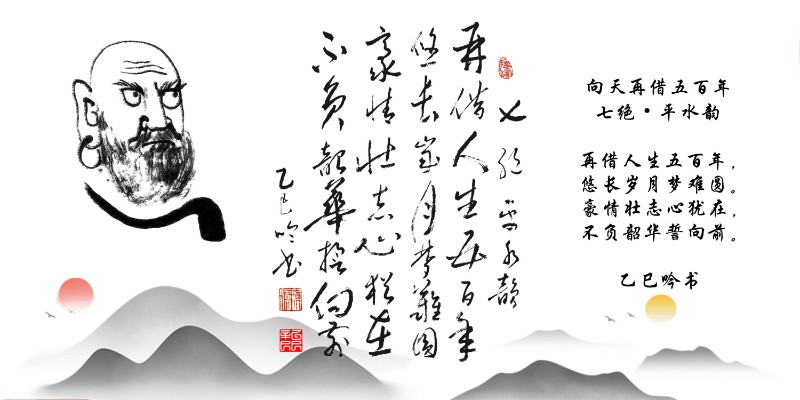 七绝 平水韵
再借人生五百年
悠长岁月梦难圆
豪情壮志心犹在
不负韶华誓向前
乙巳吟书
向天再借五百年
七绝·平水韵
再借人生五百年，
悠长岁月梦难圆。
豪情壮志心犹在，
不负韶华誓向前。
乙巳吟书